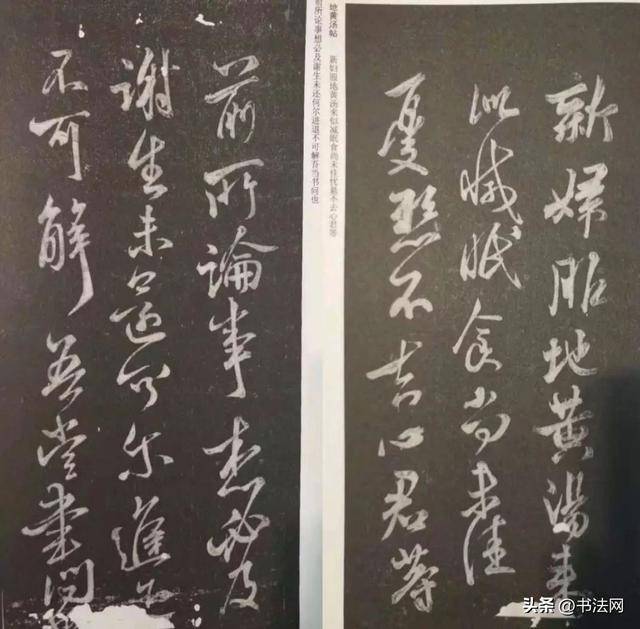 新婦服地黃湯來
似減眠食尚未佳
憂懸不去心君等
地黄汤帖 新妇服地黄汤来似减眠食尚未佳忧悬不去心君等
前所论事想必及谢生未还何尔进退不可解吾当书问也
前所論事想必及
謝生未還何爾進退
不可解吾當書問也
头条 @书法网